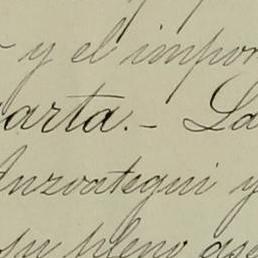 y el impor
arta.- La
Anzoategui y
su pleno ase